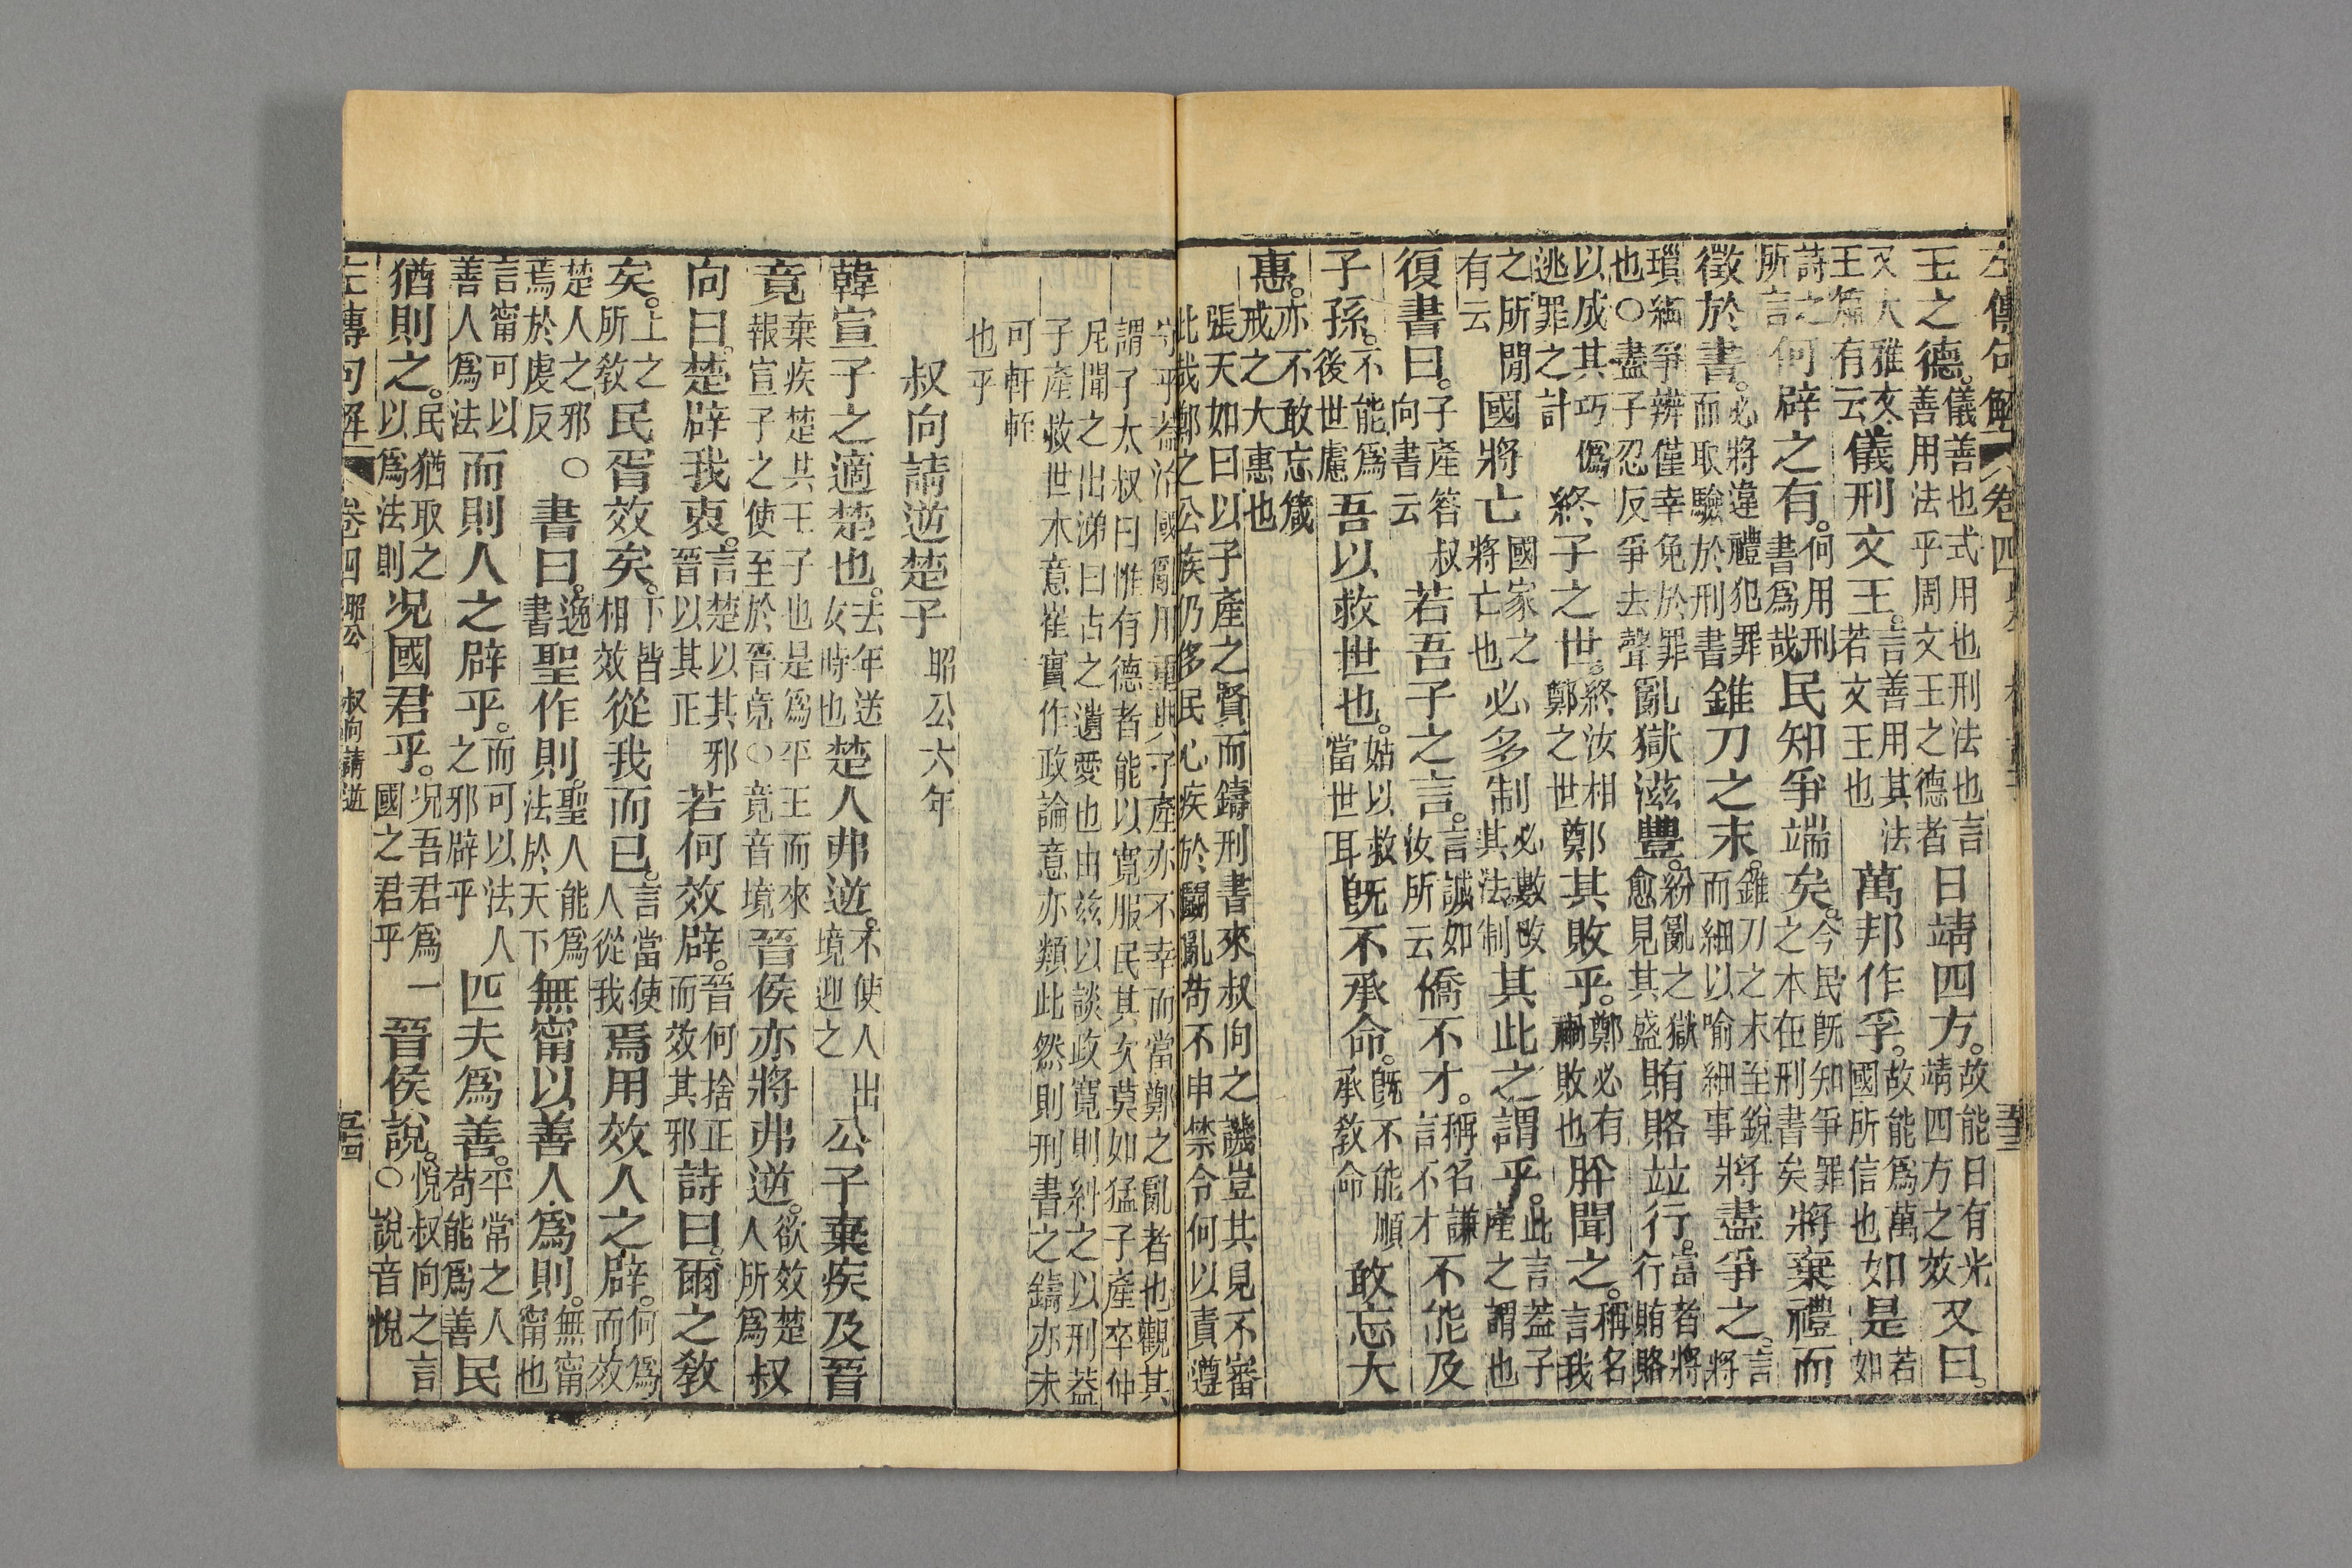 左傳句解 卷四
王之德。儀善也式用也刑法也言善用法乎周文王之德者日靖四方。故能日有光靖四方之效又曰。
又大雅文王篇有云儀刑文王。言善用其法若文王也萬邦作孚。故能爲萬國所信也如是若如
詩之所言何辟之有。何用刑書爲哉民知爭端矣。今民旣知爭罪之本在刑書矣將棄禮而
徵於書。必將違禮犯罪而取驗於刑書錐刀之末。錐刀之末至銳而細以喻細事將盡爭之。言將
瑣細爭辨僅幸免於罪也○盡子忍反爭去聲亂獄滋豐。紛亂之獄愈見其盛賄賂竝行。富者將行賄賂
以成其巧僞逃罪之計終子之世。終汝相鄭之世鄭其敗乎。鄭必有禍敗也肸聞之。稱名言我
之所聞有云國將亡國家之將亡也必多制必數改其法制其此之謂乎。此言葢子產之謂也
復書曰。子產答叔向書云若吾子之言。言誠如汝所云僑不才。稱名謙言不才不能及
子孫。不能爲後世慮吾以救世也。姑以救當世耳旣不承命。旣不能順承敎命敢忘大
惠。亦不敢忘箴戒之大惠也
張天如曰以子產之賢而鑄刑書來叔向之譏豈其見不審
此哉鄭之公族仍侈民心疾於鬭亂苟不申禁令何以責遵
守乎葢治國亂用重典子產亦不幸而當鄭之亂者也觀其
謂子太叔曰惟有德者能以寬服民其次莫如猛子產卒仲
尼聞之出涕曰古之遺愛也由茲以談政寬則糾之以刑葢
子產救世本意崔實作政論意亦類此然則刑書之鑄亦未
可軒輊
也乎
叔向請逆楚子 昭公六年
韓宣子之適楚也。去年送女時也楚人弗逆。不使人出境迎之公子棄疾及晉
竟棄疾楚共王子也是爲平王而來報宣子之使至於晉竟○竟音境晉侯亦將弗逆。欲效楚人所爲叔
向曰。楚辟我衷。言楚以其邪晉以其正若何效辟。晉何捨正而效其邪詩曰。爾之敎
矣。上之所敎民胥效矣。下皆相效從我而已。言當使人從我焉用效人之辟。何爲而效
楚人之邪○焉於虔反書曰。逸書聖作則。聖人能爲法於天下無甯以善人爲則。無甯甯也
言甯可以善人爲法而則人之辟乎。而可以法人之邪辟乎匹夫爲善。平常之人苟能爲善民
猶則之。民猶取之以爲法則況國君乎。況吾君爲一國之君乎晉侯說。悅叔向之言○說音悅
左傳句解 卷四 昭公 叔向請逆 五十四